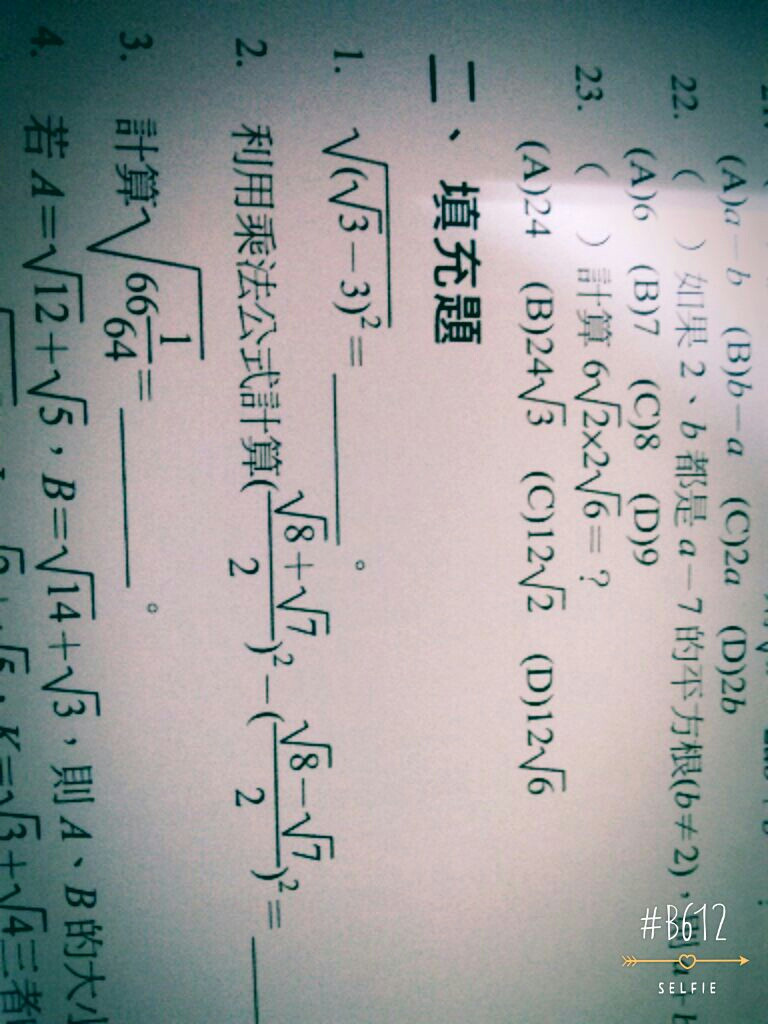 (A)a－b (B)b－a (C)2a (D)2b
22. ( )如果 2、b 都是 a－7 的平方根(b≠2)，
(A)6 (B)7 (C)8 (D)9
23. ( )計算 6√2×2√6＝？
(A)24 (B)24√3 (C)12√2 (D)12√6
二、填充題
1. √(√3－3)²＝＿＿＿＿。
2. 利用乘法公式計算(√8＋√7/2)²－(√8－√7/2)²＝＿＿＿
3. 計算√66 1/64＝＿＿＿＿。
4. 若 A＝√12＋√5，B＝√14＋√3，則 A、B 的大小
K＝√3＋√4三者
#B612
SELFIE